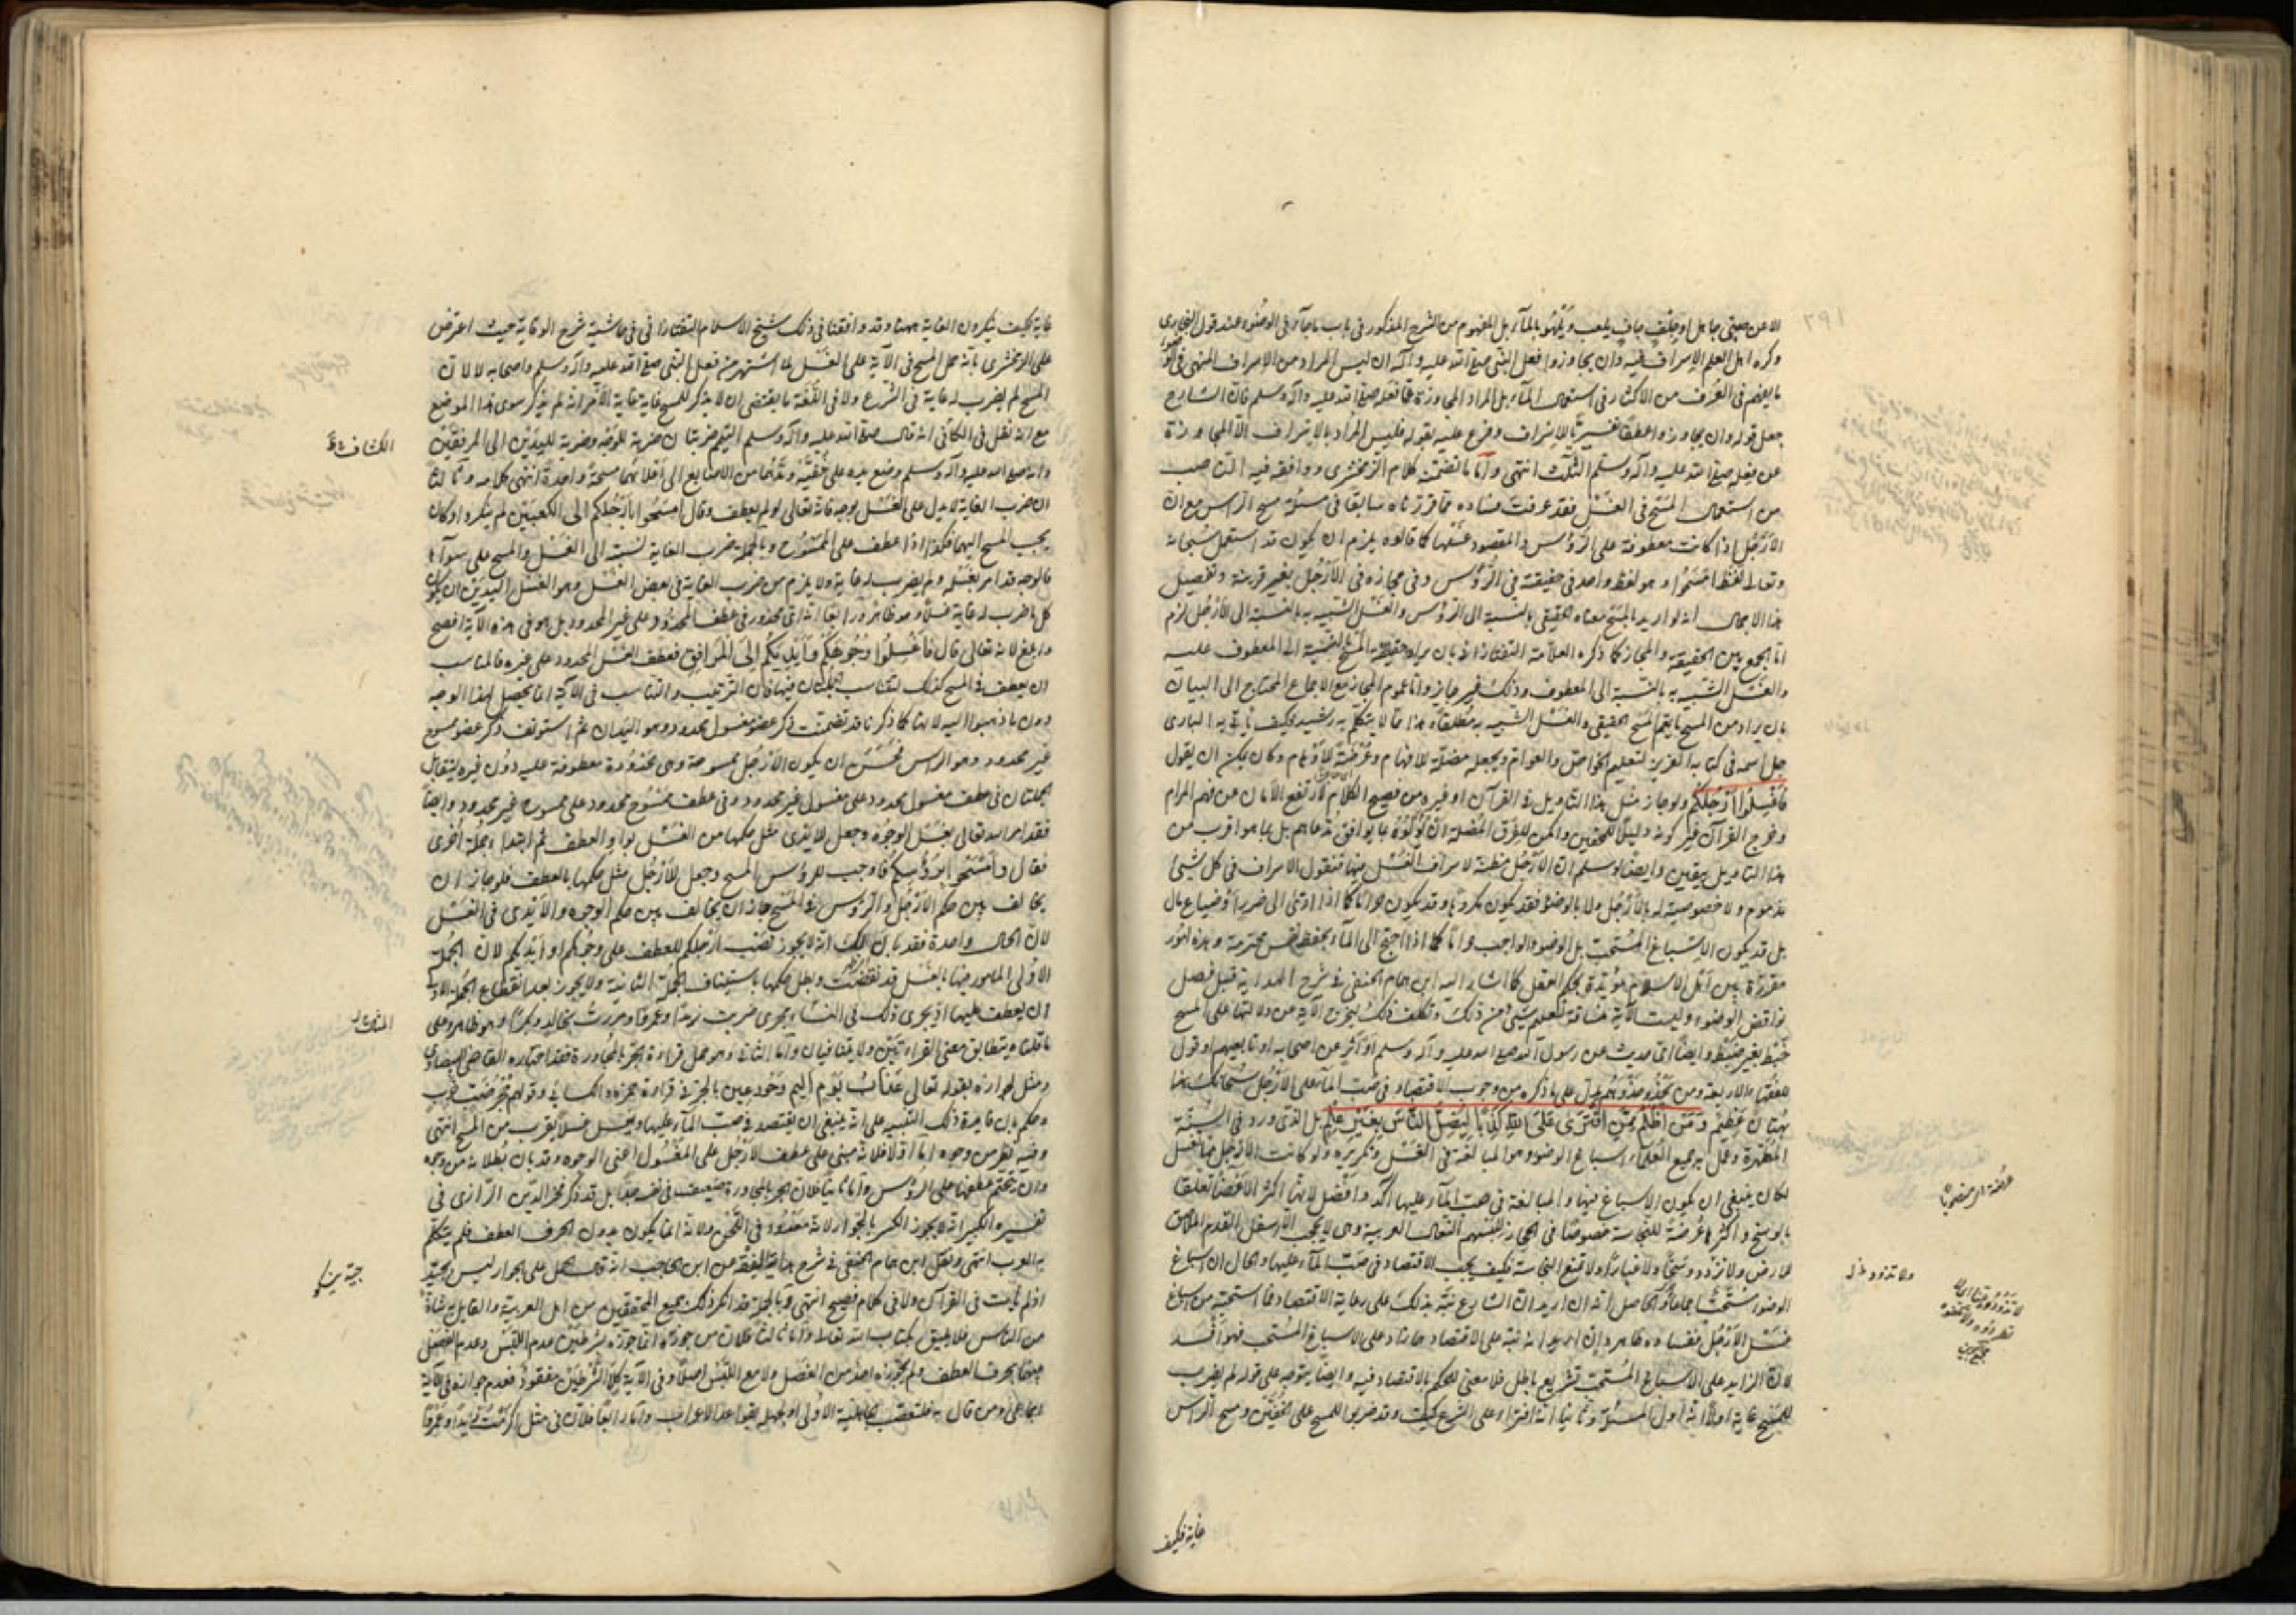 الا عن صبي جاهل او جلف جاف يلعب ويلهو بالماء بل المفهوم من الشرح المذكور في باب ما جاء في الوضوء عند قول البخاري
وكره اهل العلم الاسراف فيه وان يجاوزوا فعل النبي صلى الله عليه وآله ان ليس المراد من الاسراف المنهي في الوضوء
ما يفهم في العرف من الاكثار في استعمال الماء بل المراد المجاوزة عما فعله صلى الله عليه وآله وسلم فان الشارح
جعل قوله وان يجاوزوا عطفا تفسيريا للاسراف وفرع عليه بقوله فليس المراد بالاسراف الا المجاوزة
عن فعله صلى الله عليه وآله وسلم الثلث انتهى واما ما تضمنه كلام الزمخشري ووافقه فيه الناصب
من استعمال المسح في الغسل فقد عرفت فساده مما قررناه سابقا في مسئلة مسح الراس مع ان
الارجل اذا كانت معطوفة على الرؤس والمقصود غسلها كما قالوه يلزم ان يكون قد استعمل سبحانه
وتعالى لفظ امسحوا وهو لفظ واحد في حقيقته في الرؤس وفي مجازه في الارجل بغير قرينة وتفصيل
هذا الاجمال انه لو اريد بالمسح معناه الحقيقي بالنسبة الى الرؤس والغسل الشبيه به بالنسبة الى الارجل لزم
اما الجمع بين الحقيقة والمجاز كما ذكره العلامة التفتازاني بان يراد حقيقة المسح بالنسبة الى المعطوف عليه
والغسل الشبيه به بالنسبة الى المعطوف وذلك غير جايز واما عموم المجاز مع الاجماع المحتاج الى البيان
بان يراد من المسح ما يعم المسح الحقيقي والغسل الشبيه به مطلقا وهذا مما لا يتكلم به رشيد وكيف ياتي به الباري
جل اسمه في كتابه العزيز لتعليم الخواص والعوام ويجعله مضلة للافهام وعرضة للاوهام وكان يمكن ان يقول
فاغسلوا ارجلكم ولو جاز مثل هذا التاويل في القرآن او غيره من فصيح الكلام لارتفع الامان عن فهم المرام
وخرج القرآن عن كونه دليلا للمحققين وامكن للفرق المضلة ان يؤولوه بما يوافق مذاهبهم بل بما هو اقرب من
هذا التاويل بيقين وايضا لو سلم ان الارجل مظنة لاسراف الغسل فيها فنقول الاسراف في كل شيئ
مذموم ولا خصوصية له بالارجل ولا بالوضوء فقد يكون مكروها وقد يكون حراما كما اذا ادى الى ضرر او ضياع مال
بل قد يكون الاسباغ المستحب بل الوضوء الواجب حراما كما اذا احتيج الى الماء لحفظ نفس محترمة وهذه امور
مقررة بين اهل الاسلام مؤيدة بحكم العقل كما اشار اليه ابن همام الحنفي في شرح الهداية قبيل فصل
نواقض الوضوء وليست الآية مساقة لتعليم شيئ من ذلك وتكلف ذلك يخرج الآية عن دلالتها على المسح
خبط بغير ضبط وايضا اي حديث عن رسول الله صلى الله عليه وآله وسلم او اثر عن اصحابه او تابعيهم او قول
للفقهاء الاربعة ومن يحذو حذوهم يدل على ما ذكره من وجوب الاقتصاد في صب الماء على الارجل سبحانك هذا
بهتان عظيم ومن اظلم ممن افترى على الله كذبا ليضل الناس بغير علم بل الذي ورد في السنة
المطهرة وعمل به جميع العلماء اسباغ الوضوء وهو المبالغة في الغسل وتكريره ولو كانت الارجل مما تغسل
لكان ينبغي ان يكون الاسباغ فيها والمبالغة في صب الماء عليها آكد وافضل لانها اكثر الاعضاء تعلقا
بالوسخ واكثر عرضة للنجاسة خصوصا في الحجاز للبسهم النعال العربية وهي لا يحمي الا اسفل القدم الملاقي
للارض ولا تزود وسخا ولا غبارا ولا تمنع النجاسة فكيف يجب الاقتصاد في صب الماء عليها والحال ان اسباغ
الوضوء مستحب اجماعا والحاصل انه ان اريد ان الشارع نبه بذلك على رعاية الاقتصاد فيما استحبه من اسباغ
غسل الارجل ففساده ظاهر وان اريد انه نبه على الاقتصاد فيما زاد على الاسباغ المستحب فهو افسد
لان الزايد على الاسباغ المستحب تشريع باطل فلا معنى للحكم بالاقتصاد فيه وايضا يتوجه على قوله لم يضرب
للمسح غاية اولا انه اول المسئلة وثانيا انه افتراء على الشرع كيف وقد ضربوا للمسح على الخفين ومسح الراس
غاية فكيف
عرضة اي منصوبا
ولا تذود
غاية فكيف ينكرون الغاية ههنا وقد وافقنا في ذلك شيخ الاسلام التفتازاني في حاشية شرح الوقاية حيث اعترض
على الزمخشري بانه حمل المسح في الآية على الغسل لما اشتهر من فعل النبي صلى الله عليه وآله وسلم واصحابه لا لان
المسح لم يضرب له غاية في الشرع ولا في اللغة ما يقتضي ان لا يذكر للمسح غاية غاية الامر انه لم يذكر سوى هذا الموضع
مع انه نقل في الكافي انه قال صلى الله عليه وآله وسلم التيمم ضربتان ضربة للوجه وضربة لليدين الى المرفقين
وانه صلى الله عليه وآله وسلم وضع يده على خفيه ومدهما من الاصابع الى اعلاهما مسحة واحدة انتهى كلامه وثالثا
ان ضرب الغاية لا يدل على الغسل بوجه فانه تعالى لو لم يعطف وقال امسحوا ارجلكم الى الكعبين لم ينكر او كان
يجب المسح اليهما فكذا اذا عطف على الممسوح وبالجملة ضرب الغاية نسبته الى الغسل والمسح على سواء
فالوجه قد امر بغسله ولم يضرب له غاية ولا يلزم من ضرب الغاية في بعض الغسل وهو الغسل اليدين ان يكون
كل ما ضرب له غاية غسلا وهو ظاهر ورابعا انه اي محذور في عطف المحدود على غير المحدود بل هو في هذه الآية افصح
وابلغ لانه تعالى قال فاغسلوا وجوهكم وايديكم الى المرافق فعطف الغسل المحدود على غيره فالمناسب
ان يعطف في المسح كذلك لتناسب الجملتان فيها فان الترتيب والتناسب في الآية انما يحصل بهذا الوجه
دون ما ذهبوا اليه لانها كما ذكرنا قد تضمنت ذكر عضو مغسول محدود وهو اليدان ثم استونف ذكر عضو ممسوح
غير محدود وهو الراس فحسن ان يكون الارجل ممسوحة وهي محدودة معطوفة عليه دون غيره ليتقابل
الجملتان في عطف مغسول محدود على مغسول غير محدود وفي عطف ممسوح محدود على ممسوح غير محدود وايضا
فقد امر الله تعالى بغسل الوجوه وجعل للايدي مثل حكمها من الغسل بواو العطف ثم ابتدا بجملة اخرى
فقال وامسحوا برؤسكم فاوجب للرؤس المسح وجعل للارجل مثل حكمها بالعطف فلو جاز ان
يخالف بين حكم الارجل والرؤس في المسح جاز ان يخالف بين حكم الوجوه والايدي في الغسل
لان الحال واحدة فقد بان لك انه لا يجوز نصب ارجلكم للعطف على وجوهكم او ايديكم لان الجملة
الاولى المامور فيها بالغسل قد نقضت وبطل حكمها باستيناف الجملة الثانية ولا يجوز بعد انقطاع الجملة الاولى
ان يعطف عليها اذ يجري ذلك في النساء مجرى ضربت زيدا وعمرا ومررت بخالد وبكرا وهو ظاهر وعلى
ما قلناه يتطابق معنى القراءتين ولا يتنافيان واما الثاني وهو حمل قراءة الجر بالمجاورة فقد اختاره القاضي البيضاوي
ومثل لجوازه بقوله تعالى عذاب يوم اليم وحور عين بالجر في قراءة حمزة والكسائي وقولهم جحر ضب خرب
وحكم بان فايدة ذلك التنبيه على انه ينبغي ان يقتصد في صب الماء عليها ويغسل غسلا يقرب من المسح انتهى
وفيه نظر من وجوه اما اولا فلانه مبني على عطف الارجل على المغسول اعني الوجوه وقد بان بطلانه من وجوه
وان تحتم عطفها على الرؤس واما ثانيا فلان الجر بالمجاورة ضعيف في نفسه جدا بل قد ذكر فخر الدين الرازي في
تفسيره الكبير انه لا يجوز الكسر بالجوار لانه معدود في اللحن ولانه انما يكون بدون الحرف العطف فلم يتكلم
به العرب انتهى ونقل ابن همام الحنفي في شرح هداية الفقه عن ابن الحاجب انه قال الحمل على الجوار ليس بجيد
اذ لم يات في القرآن ولا في كلام فصيح انتهى وبالجملة قد انكر ذلك جميع المحققين من اهل العربية والقايل به شاذ
من الناس فلا يليق بكتاب الله تعالى واما ثالثا فلان من جوزه انما جوزه بشرطين عدم اللبس وعدم الفصل
بينهما بحرف العطف ولم يجوزه احد من الفصل ولا مع اللبس اصلا وفي الآية كلا الشرطين مفقود فعدم جوازه في الآية
اجماعي ومن قال به فلتعصب الجاهلية الاولى او لجهله بقواعد الاعراب واما رابعا فلان في مثل اكرمت زيدا وعمرا